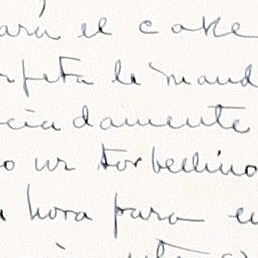 ará el cake
rpeta le mand
ciadamente
o un torbellino
a hora para en